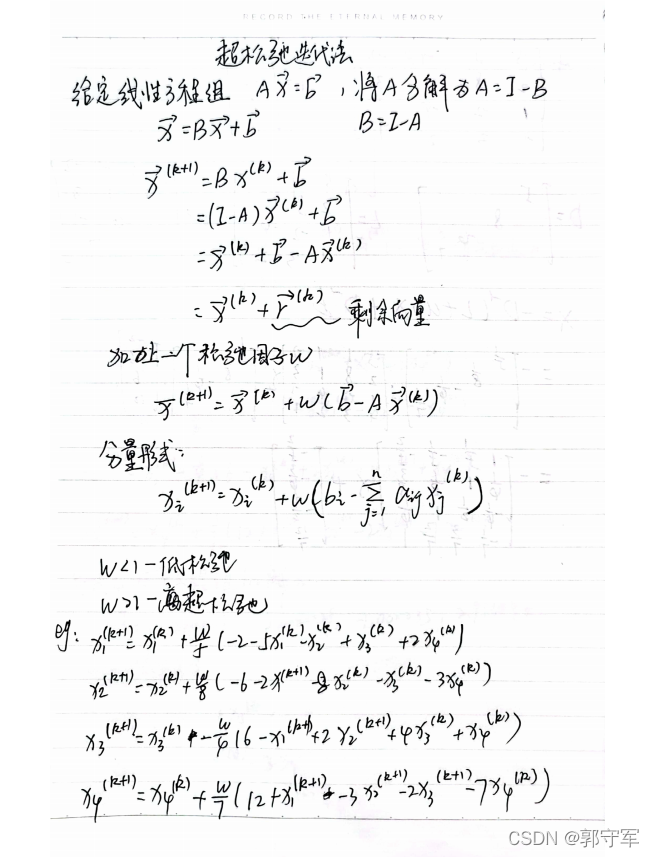 RECORD THE ETERNAL MEMORY
超松弛迭代法
给定线性方程组 A\vec{x}=\vec{b}，将A分解为A=I-B
\vec{x}=B\vec{x}+\vec{b} B=I-A
\vec{x}^{(k+1)}=Bx^{(k)}+\vec{b}
=(I-A)\vec{x}^{(k)}+\vec{b}
=\vec{x}^{(k)}+\vec{b}-A\vec{x}^{(k)}
=\vec{x}^{(k)}+\vec{r}^{(k)} 剩余向量
加上一个松弛因子w
\vec{x}^{(k+1)}=\vec{x}^{(k)}+w(\vec{b}-A\vec{x}^{(k)})
分量形式：
x_i^{(k+1)}=x_i^{(k)}+w(b_i-\sum_{j=1}^{n}a_{ij}x_j^{(k)})
w<1-低松弛
w>1-超松弛
例：x_1^{(k+1)}=x_1^{(k)}+\frac{w}{5}(-2-5x_1^{(k)}-x_2^{(k)}+x_3^{(k)}+2x_4^{(k)})
x_2^{(k+1)}=x_2^{(k)}+\frac{w}{8}(-6-2x_1^{(k+1)}-8x_2^{(k)}-x_3^{(k)}-3x_4^{(k)})
x_3^{(k+1)}=x_3^{(k)}-\frac{w}{4}(6-x_1^{(k+1)}+2x_2^{(k+1)}+4x_3^{(k)}+x_4^{(k)})
x_4^{(k+1)}=x_4^{(k)}+\frac{w}{7}(12+x_1^{(k+1)}-3x_2^{(k+1)}-2x_3^{(k+1)}-7x_4^{(k)})
CSDN @郭守军